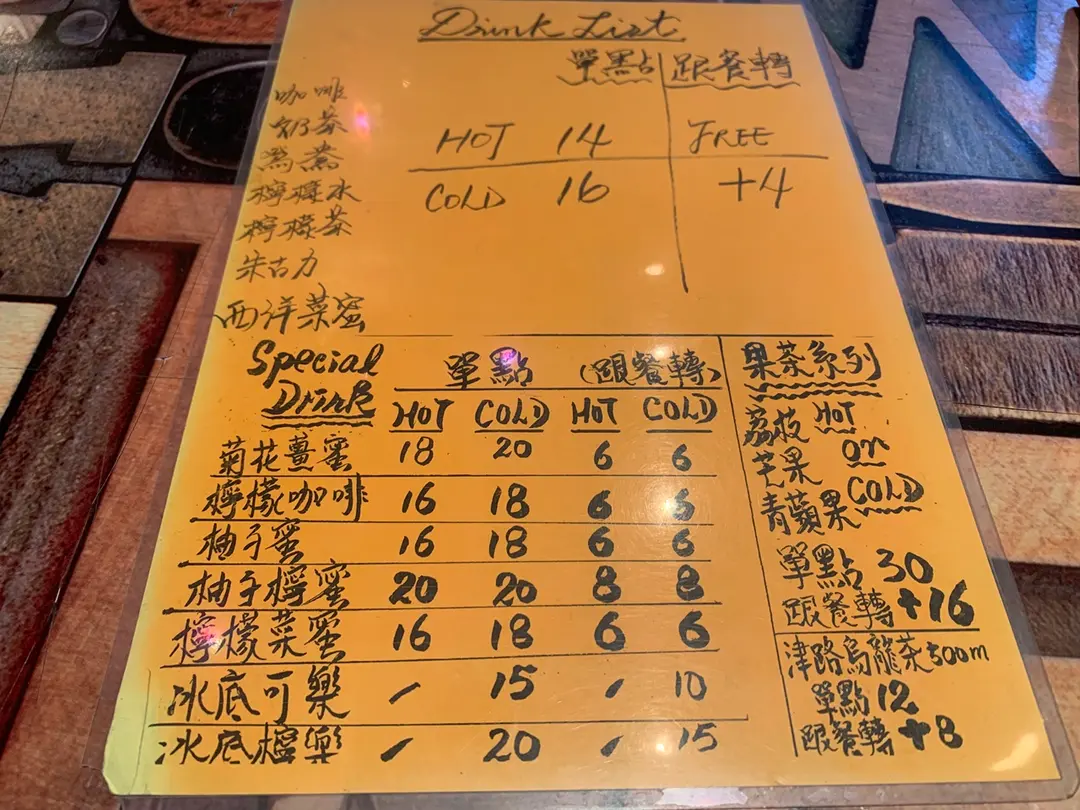 Drink List
單點 跟餐轉
咖啡
奶茶
HOT 14 FREE
鴛鴦
檸檬水
COLD 16 +4
檸檬茶
朱古力
西洋菜蜜
Special Drink
單點 (跟餐轉)
HOT COLD HOT COLD
菊花薑蜜 18 20 6 6
檸檬咖啡 16 18 6 6
柚子蜜 16 18 6 6
柚子檸蜜 20 20 8 8
檸檬菜蜜 16 18 6 6
冰底可樂 / 15 / 10
冰底檸樂 / 20 / 15
果茶系列
荔枝 HOT
芒果 or
青蘋果 COLD
單點 30
跟餐轉 +16
津路烏龍茶 500m
單點 12
跟餐轉 +8